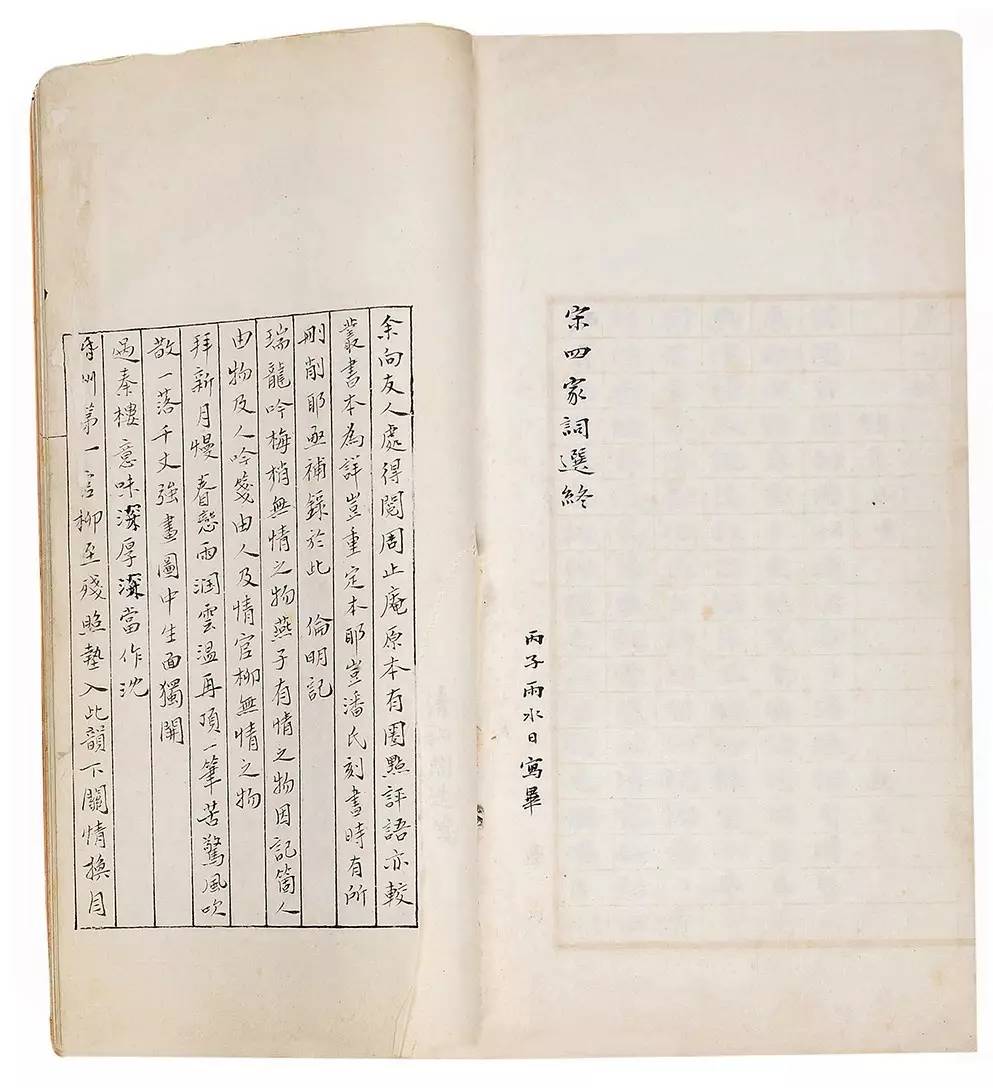 宋四家詞選終
丙子雨水日寫畢
余向友人處得閱周止庵原本有圈點評語亦較
叢書本為詳豈重定本耶豈潘氏刻書時有所
刪削耶亟補錄於此　倫明記
瑞龍吟梅梢無情之物燕子有情之物因記箇人
由物及人吟箋由人及情官柳無情之物
拜新月慢眷戀雨潤雲溫再頂一筆苦驚風吹
散一落千丈強畫圖中生面獨開
過秦樓意味深厚深當作沈
氐州第一官柳至殘照墊入此韻下關情換目